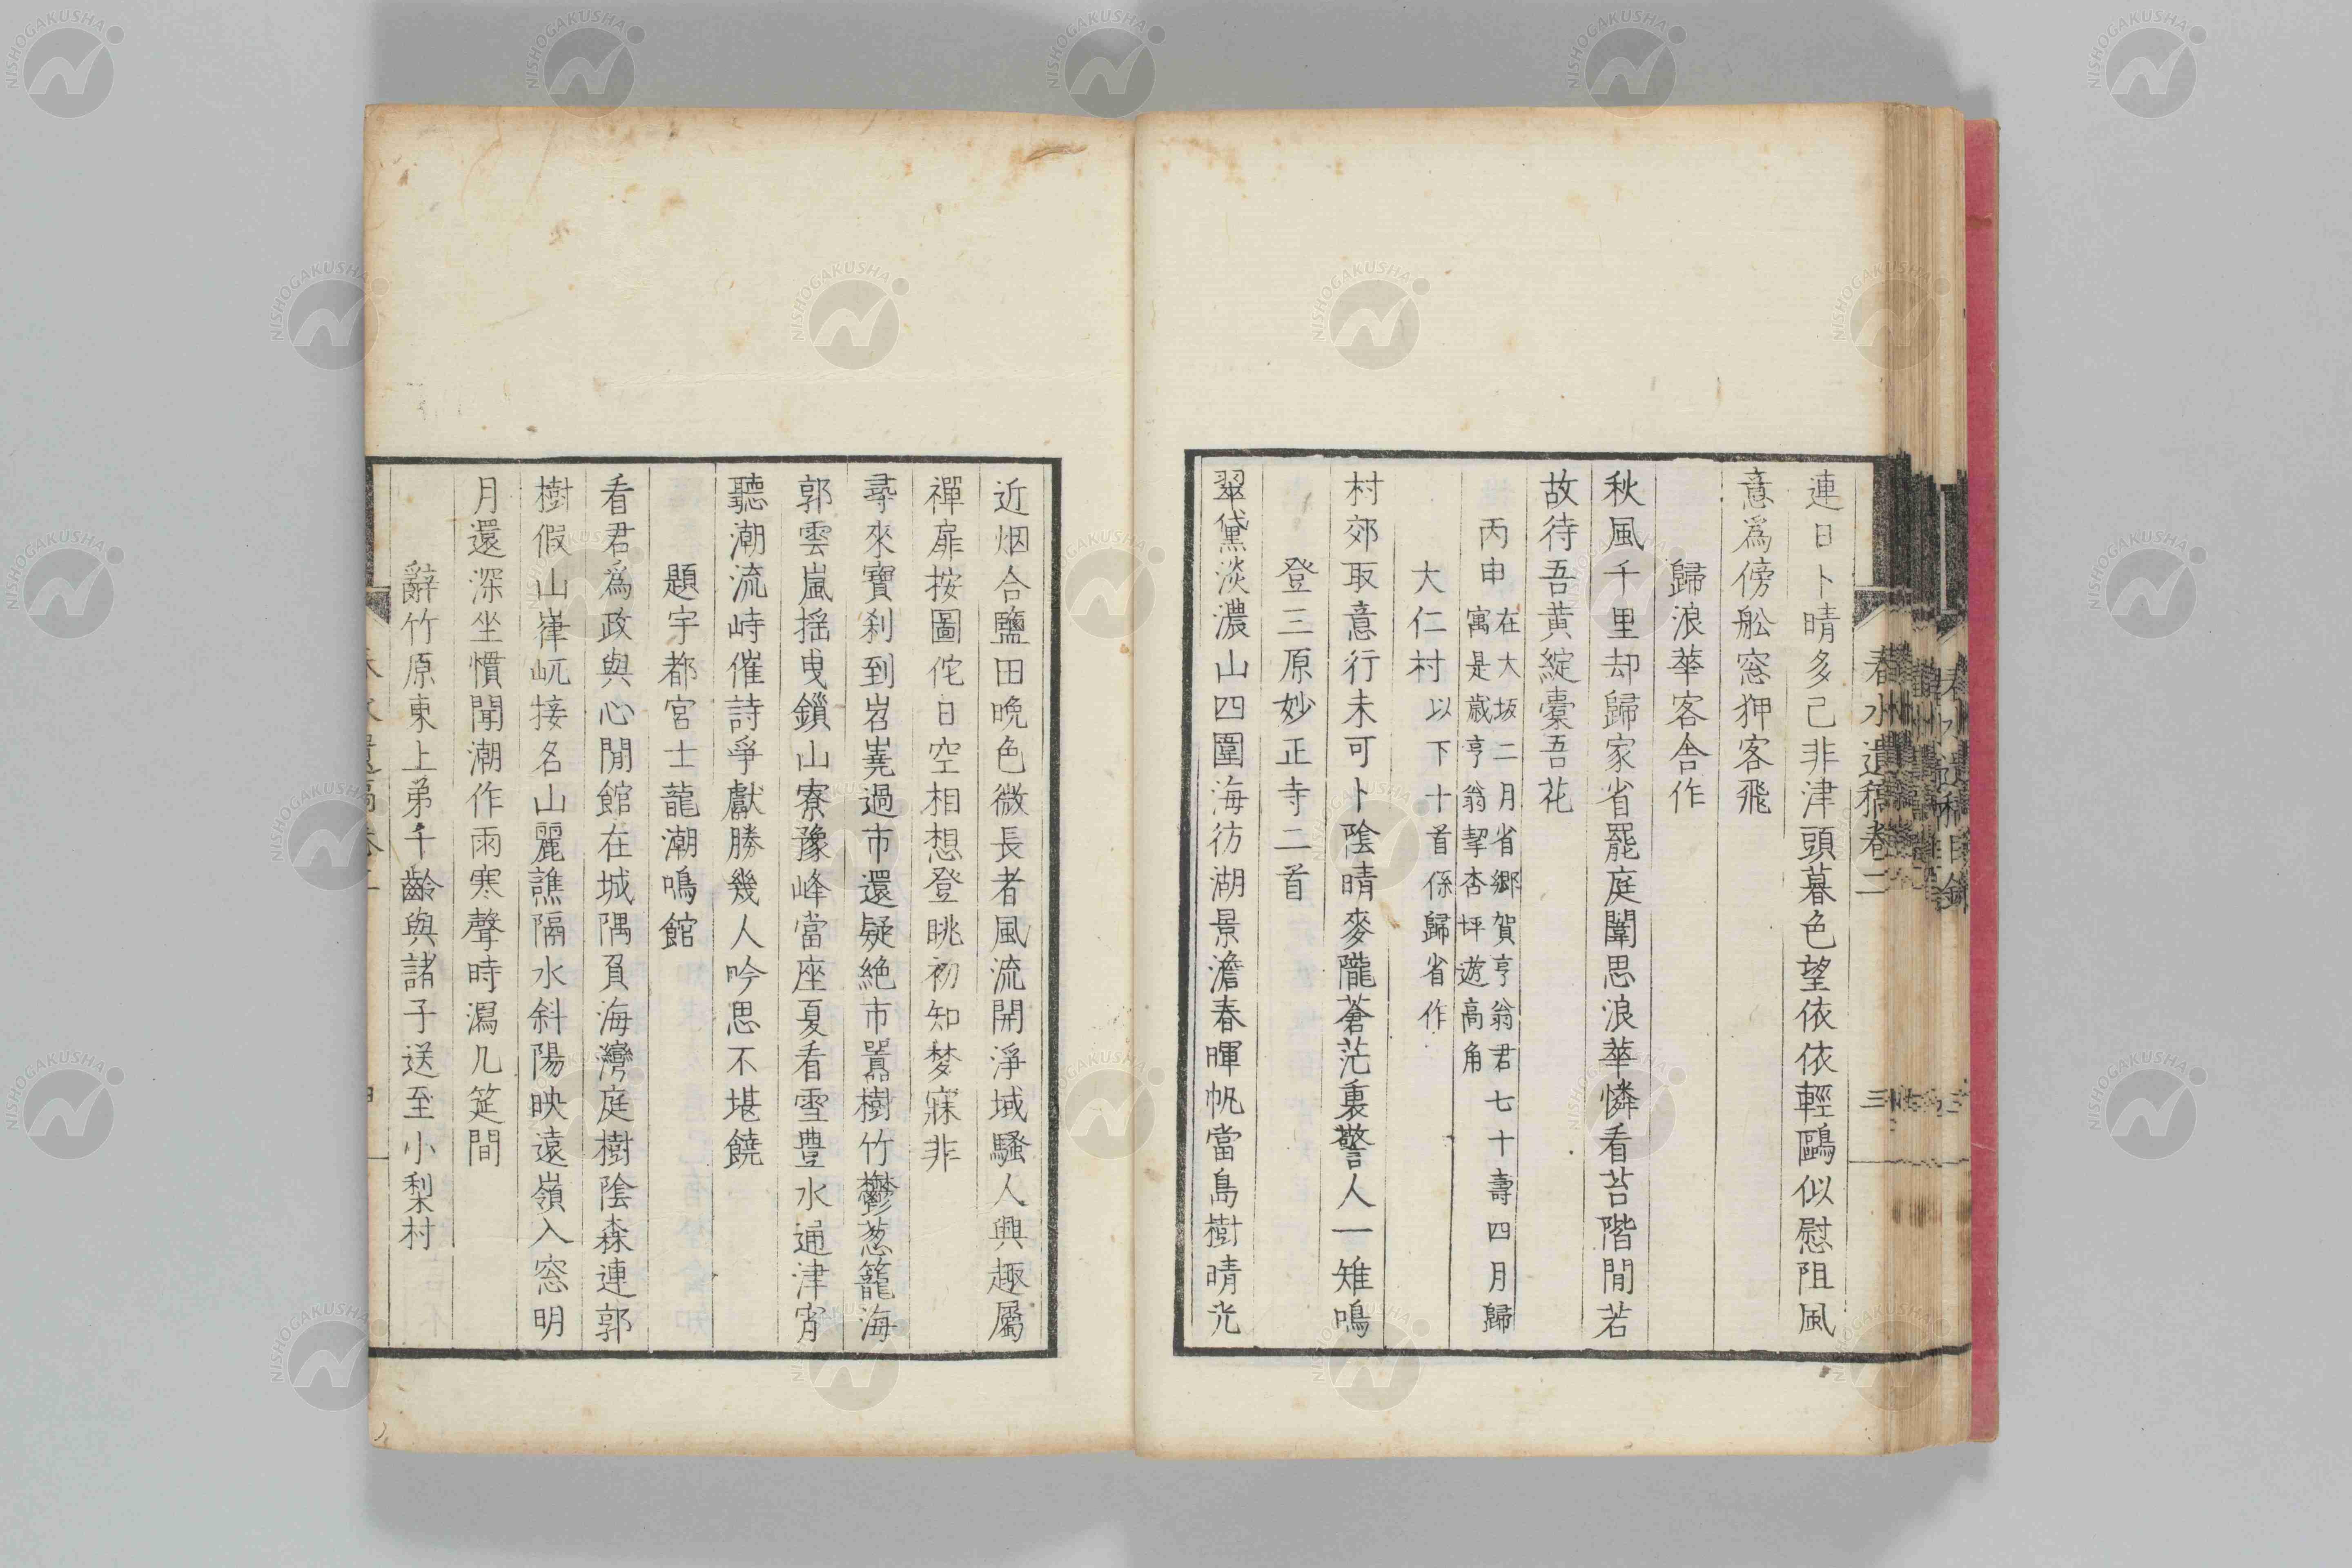 春水遺稿卷二
三
連日卜晴多已非津頭暮色望依依輕鷗似慰阻風
意爲傍舩窓狎客飛
歸浪華客舎作
秋風千里却歸家省罷庭闈思浪華憐看苔階閒若
故待吾黄綻槖吾花
丙申
在大坂二月省郷賀亨翁君七十壽四月歸
寓是歳亨翁挈杏坪遊高角
大仁村
以下十首係歸省作
村郊取意行未可卜陰晴麥隴蒼茫裏警人一雉鳴
登三原妙正寺二首
翠黛淡濃山四圍海彷湖景澹春暉帆當島樹晴光
近烟合鹽田晩色微長者風流開淨域騷人興趣屬
禪扉按圖侘日空相想登眺初知梦寐非
尋來寶刹到岧嶤過市還疑絶市囂樹竹鬱葱籠海
郭雲嵐揺曳鎻山寮豫峰當座夏看雪豊水通津宵
聽潮流峙催詩爭獻勝幾人吟思不堪饒
題宇都宮士龍潮鳴館
看君爲政與心閒館在城隅負海灣庭樹陰森連郭
樹假山嵂屼接名山麗譙隔水斜陽映遠嶺入窓明
月還深坐慣聞潮作雨寒聲時瀉几筵間
辭竹原東上弟千齡與諸子送至小梨村
NISHOGAKUSHA